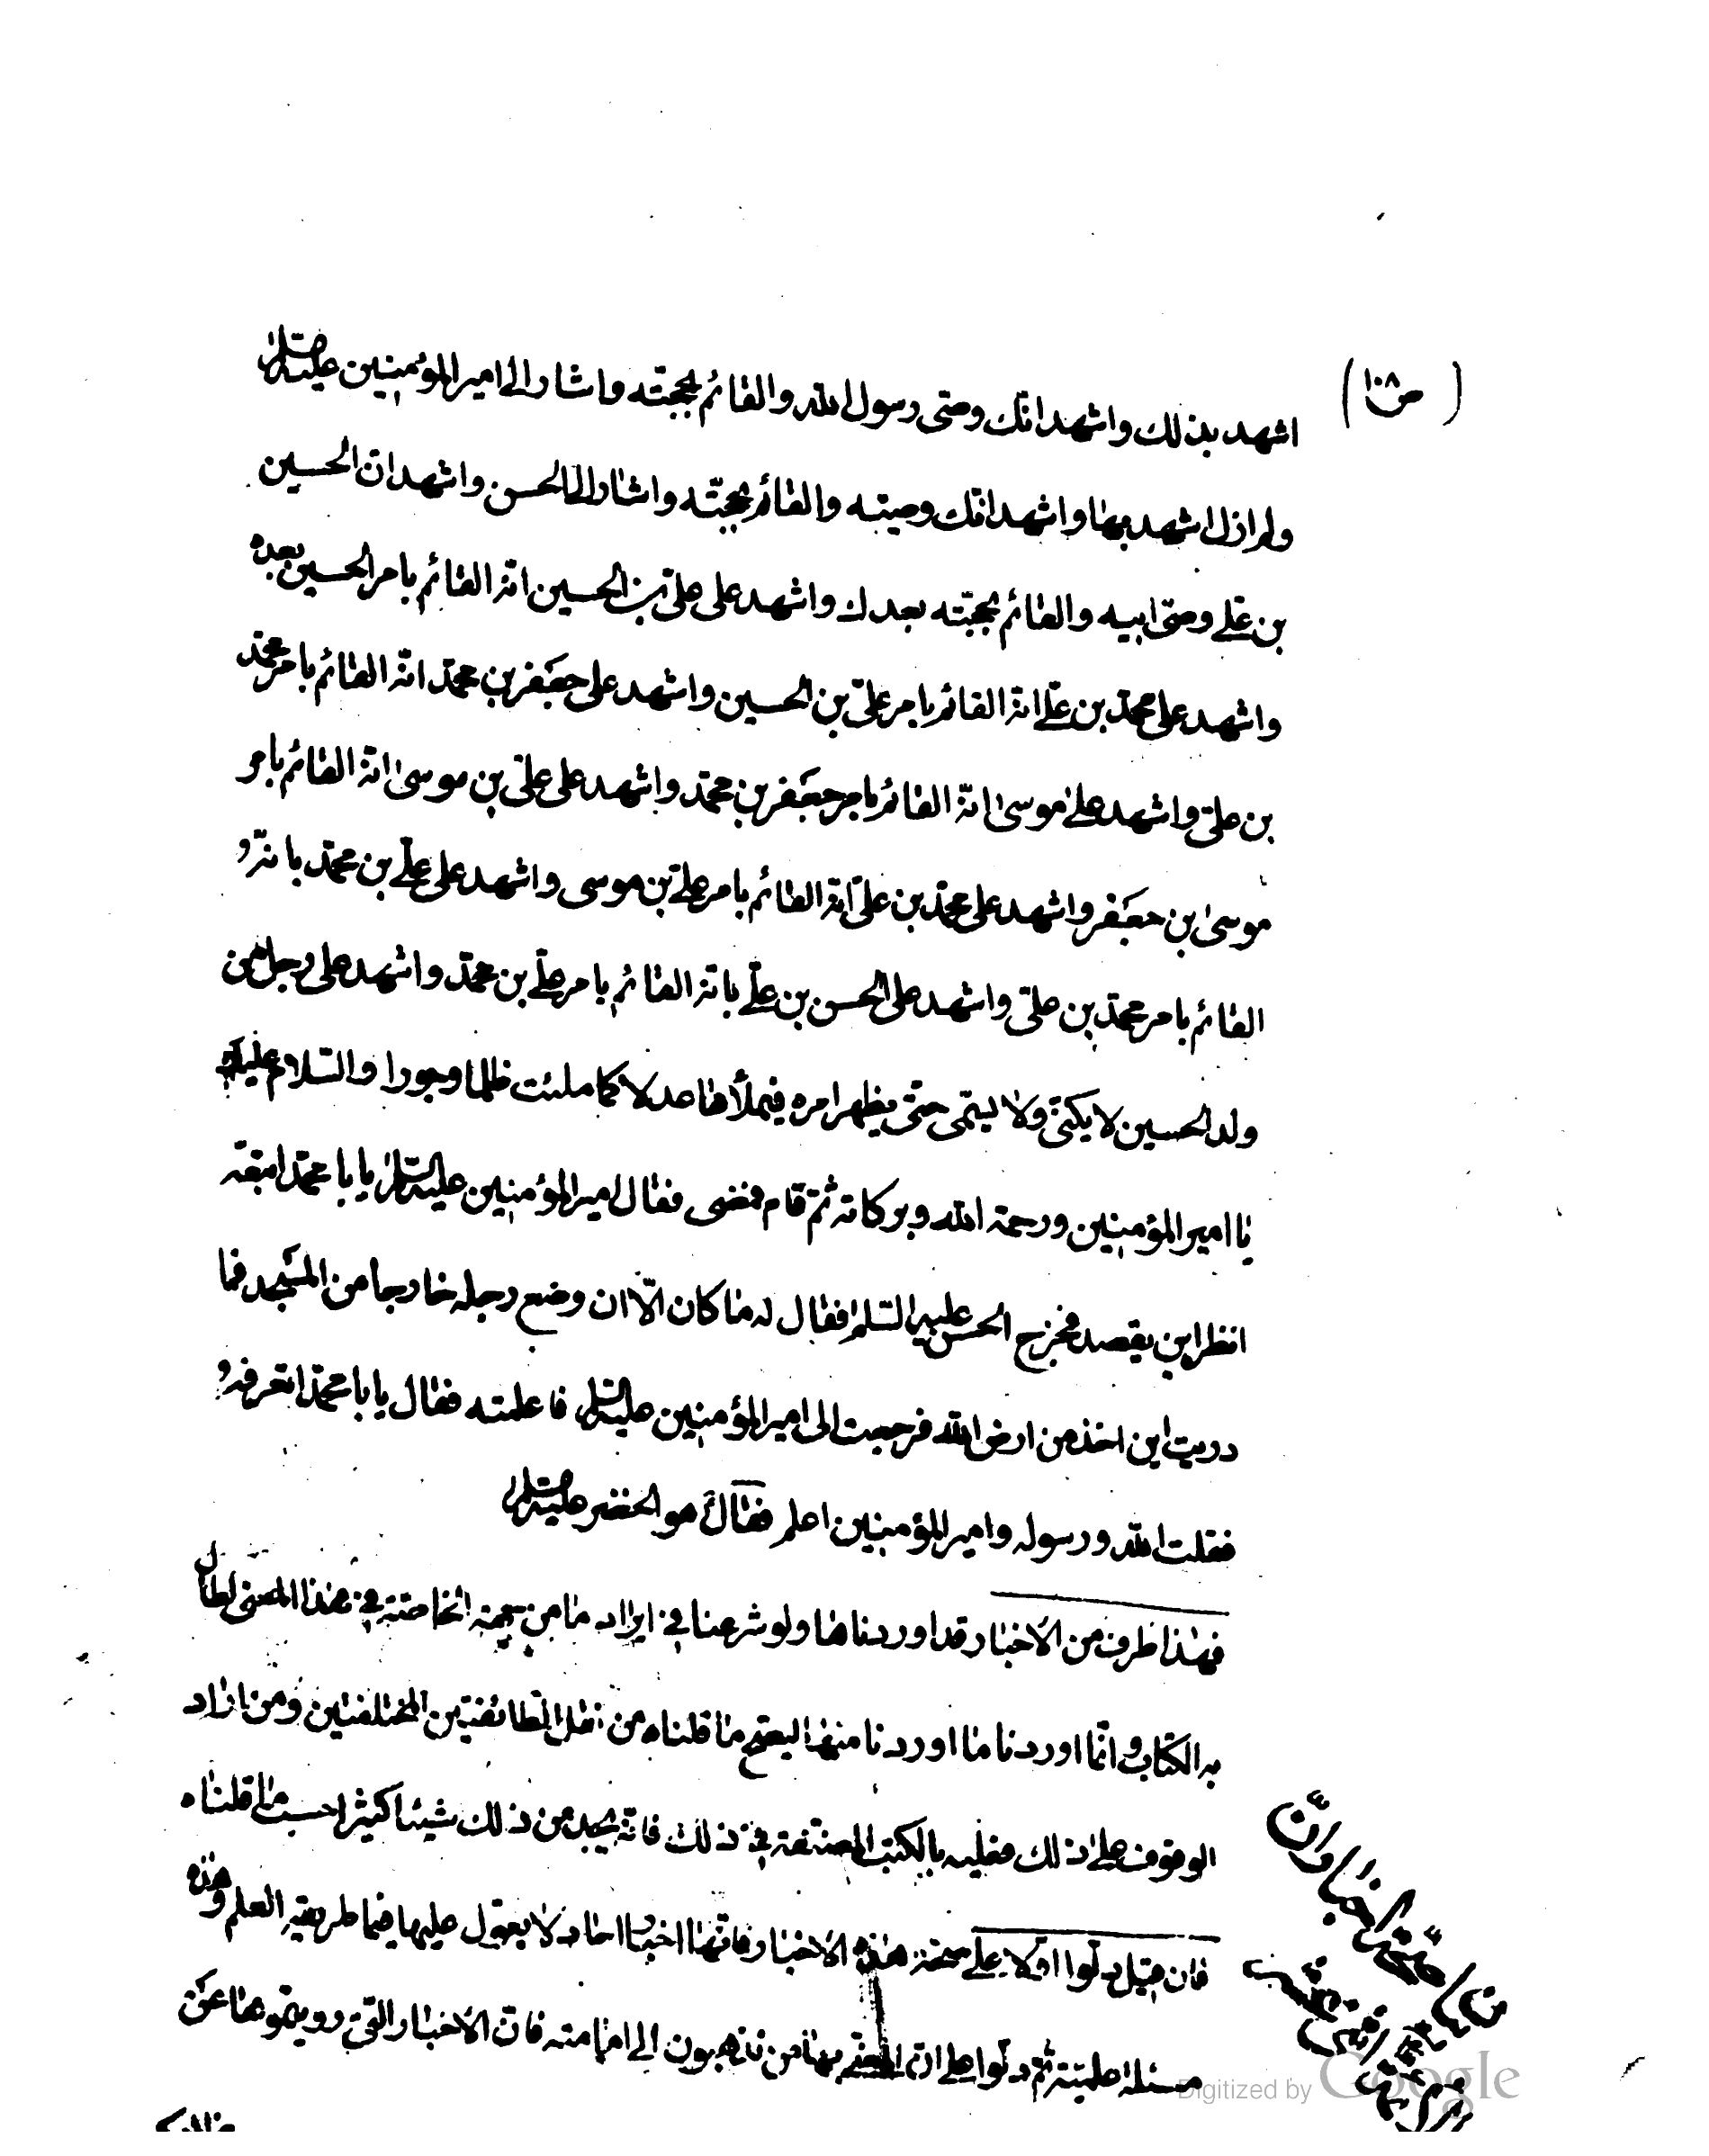 (ص ١٠٨)
اشهد بذلك واشهد انّك وصّى رسول الله والقائم بحجّته واشار الى امير المؤمنين عليه السلم
ولم ازل اشهد بها واشهد انّك وصيّه والقائم بحجّته واشار الى الحسن واشهد انّ الحسين
بن علىّ وصىّ ابيه والقائم بحجّته بعدك واشهد على علىّ بن الحسين انّه القائم بامر الحسين بعده
واشهد على محمّد بن علىّ انّه القائم بامر علىّ بن الحسين واشهد على جعفر بن محمّد انّه القائم بامر محمّد
بن علىّ واشهد على موسى انّه القائم بامر جعفر بن محمّد واشهد على علىّ بن موسى انّه القائم بامر
موسى بن جعفر واشهد على محمّد بن علىّ انّه القائم بامر علىّ بن موسى واشهد على علىّ بن محمّد بانّه
القائم بامر محمّد بن علىّ واشهد على الحسن بن علىّ بانّه القائم بامر علىّ بن محمّد واشهد على رجل من
ولد الحسين لا يكنّى ولا يسمّى حتّى يظهر امره فيملأها عدلا كما ملئت ظلما وجورا والسّلام عليك
يا امير المؤمنين ورحمة الله وبركاته ثمّ قام فمضى فقال امير المؤمنين عليه السّلم يا با محمّد اتبعه
انظر اين يقصد فخرج الحسن عليه السّلم فقال له ما كان الّا ان وضع رجله خارجا من المسجد فما
دريت اين اخذ من ارض الله فرجعت الى امير المؤمنين عليه السّلم فاعلمته فقال يا با محمّد اتعرفه
فقلت الله ورسوله وامير المؤمنين اعلم فقال هو الخضر عليه السلم
فهذا طرف من الاخبار قد اوردناها ولو شرعنا في ايراد ما من جهة الخاصّة في هذا المعنى لطال
به الكتاب وانّما اوردنا ما اوردنا منها ليصحّ ما قلناه من نقل الطائفتين المختلفتين ومن اراد
الوقوف على ذلك فعليه بالكتب المصنّفة في ذلك فانّه يجد من ذلك شيئا كثيرا حسب ما قلناه
فان قيل دلّوا اوّلا على صحّة هذه الاخبار فانّها اخبار احاد لا يعوّل عليها فيما طريقه العلم وهذه
مسئلة علميّة ثمّ دلّوا على انّ المعنىّ بها من تذهبون الى امامته فانّ الاخبار الّتي رويتموها عن
Digitized by Google